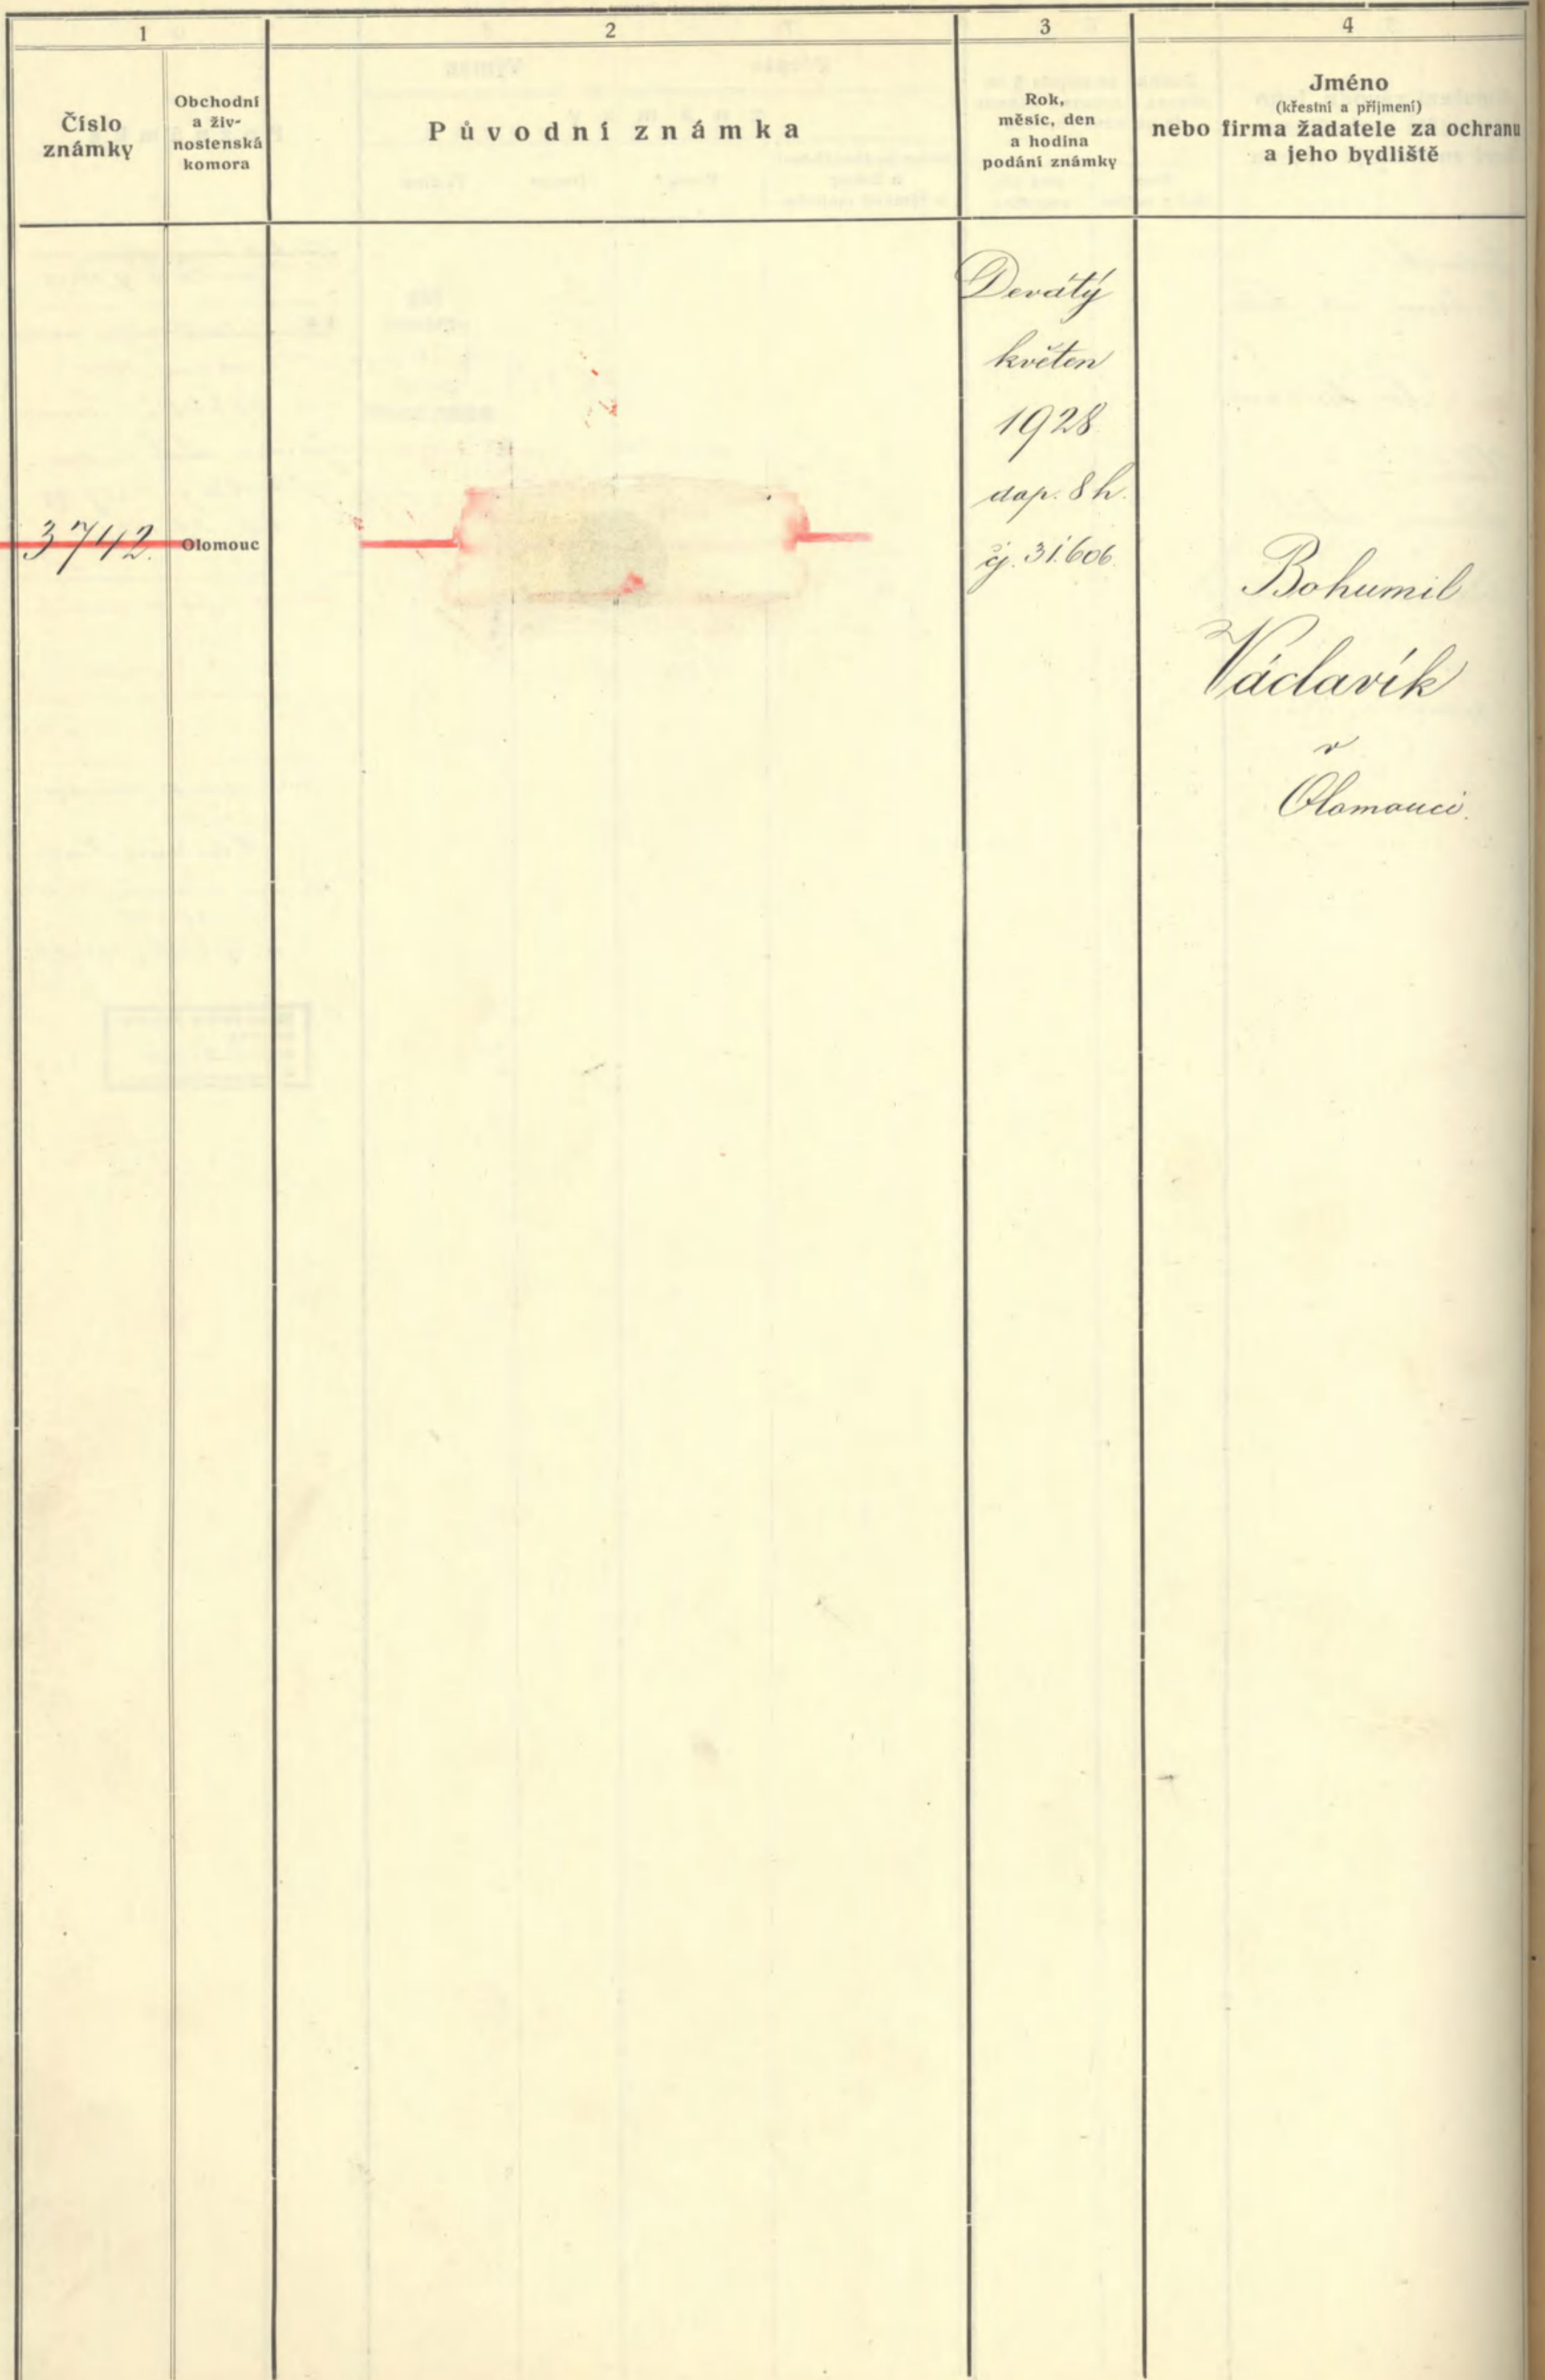 1
2
3
4
Číslo
známky
Obchodní
a živ-
nostenská
komora
Původní známka
Rok,
měsíc, den
a hodina
podání známky
Jméno
(křestní a příjmení)
nebo firma žadatele za ochranu
a jeho bydliště
3742.
Olomouc
Devátý
květen
1928
dop. 8 h.
čj. 31.606.
Bohumil
Václavík
v
Olomouci.